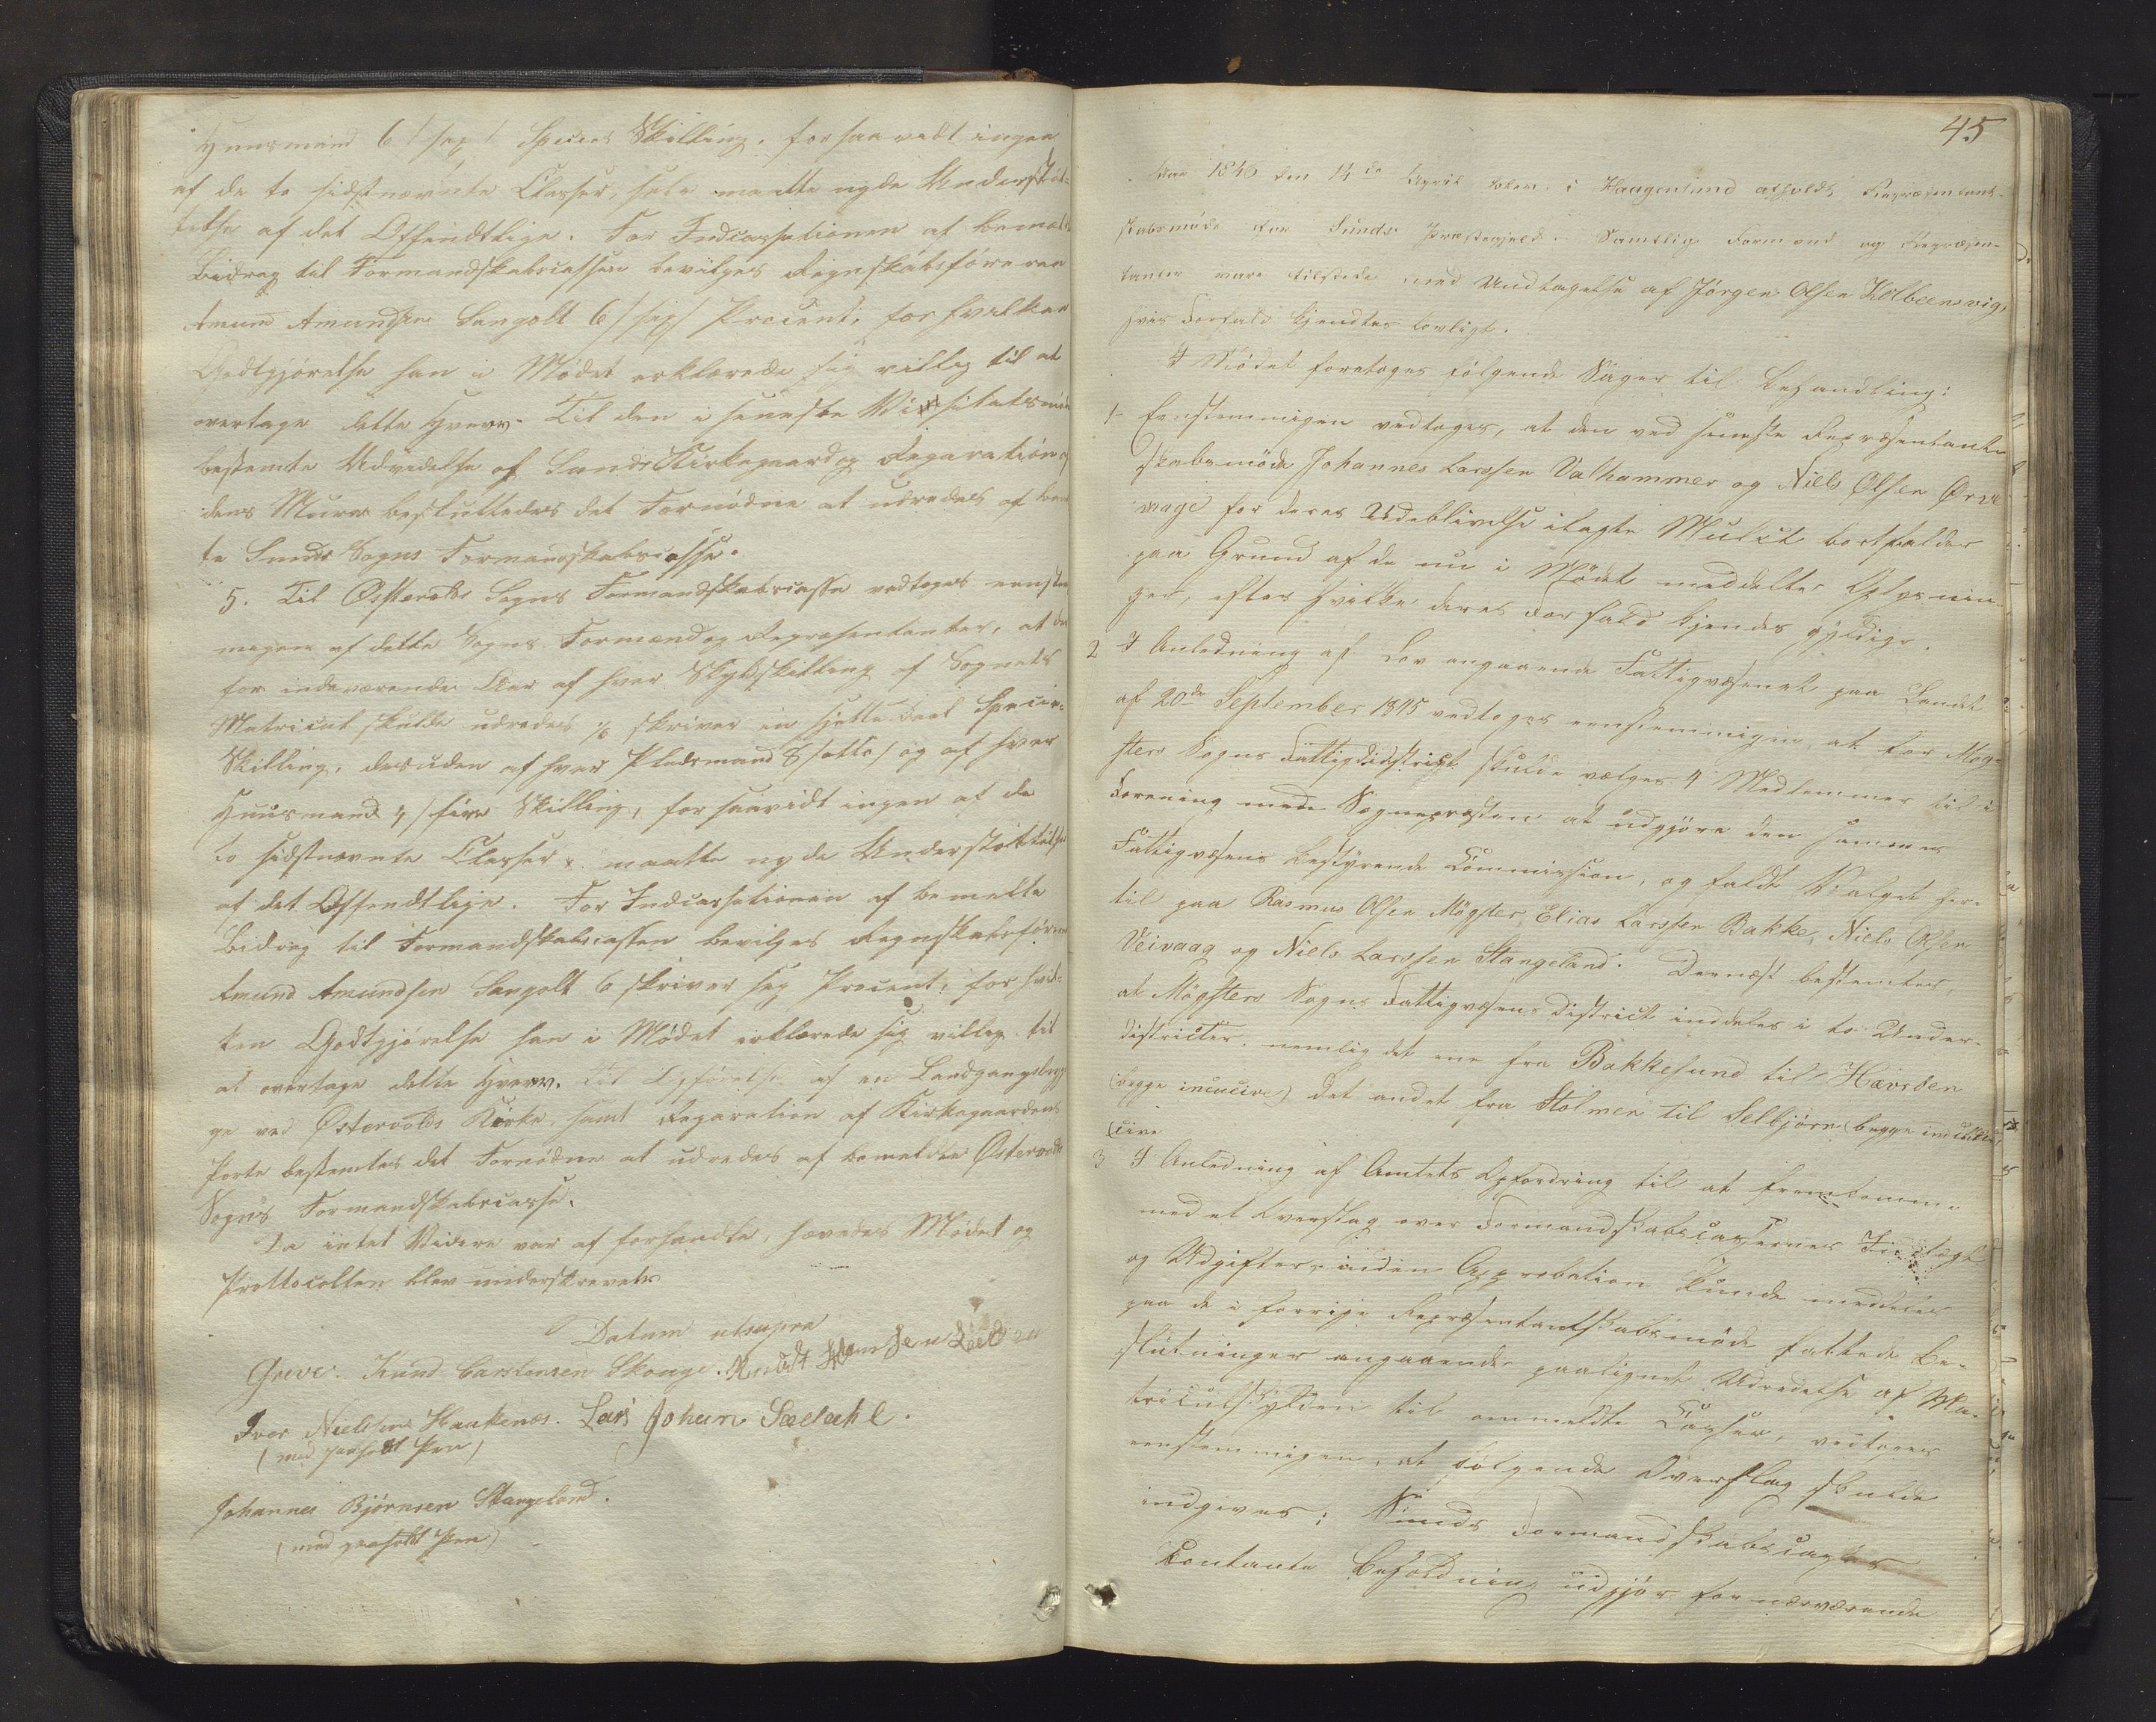 Huusmand 6 /sex/ Species Skilling, forsaavidt ingen
af de to sidstnævnte Classer, selv maatte nyde Understøt-
telse af det Offendtlige. For Indcassationen af bemældte
Bidrag til Formandskabscassen bevilges Regnskabsføreren
Amund Amundsen Sangolt 6 /sex/ Procent, for hvilken
Godtgjørelse han i Mødet erklærede sig villig til at
overtage dette Hverv. Til den i seneste Visitatsmøde
bestemte Udvidelse af Sunds Kirkegaard og Reparation af
dens Mure besluttedes det Fornødne at udredes af bemeld-
te Sunds Sogns Formandskabscasse.
5. Til Østervolds Sogns Formandskabscasse vedtoges eenstem
migen af dette Sogns Formænd og Repræsentanter, at der
for indeværende Aar af hver Skyldskilling af Sognets
Matricul skulde udredes 1/6 skriver en sjette Deel Specie-
Skilling, desuden af hver Pladsmand 8 /otte/ og af hver
Huusmand 4 /fire Skilling, forsaavidt ingen af de
to sidstnævnte Classer maatte nyde Understøttelse
af det Offendtlige. For Indcassationen af bemeldte
Bidrag til Formandskabscassen bevilges Regnskabsføreren
Amund Amundsen Sangolt 6 skriver sex Procent, for hvil-
ken Godtgjørelse han i Mødet erklærede sig villig til
at overtage dette Hverv. Til Opførelse af en Landgangsbryg
ge ved Østervolds Kirke, samt Reparation af Kirkegaardens
Porte bestemtes det Fornødne at udredes af bemeldte Østervolds
Sogns Formandskabscasse.
Da intet Videre var at forhandle, hævedes Mødet og
Prottocollen blev underskrevet.
Datum utsupra
Greve. Knud Carstensen Skouge. Knudt Hansen
Iver Nielsen Haakenæs. Lars Johan Sæledahl.
(med paaholdt Pen)
Johannes Bjørnsen Stangeland.
(med paaholdt Pen)
45
Aar 1846 den 14de April blev i Haagensund afholdt Repræsentant-
skabsmøde for Sunds Præstegjeld. Samtlige Formænd og Repræsen-
tanter vare tilstede med Undtagelse af Jørgen Olsen Kolbeensvig,
hvis Forfald kjendtes lovligt.
I Mødet foretoges følgende Sager til Behandling:
1- Eenstemmigen vedtoges, at den ved seneste Repræsentant-
skabsmøde Johannes Larssen Valhammer og Niels Olsen
vage for deres Udeblivelse ilagte Mulct bortfalder
paa Grund af de nu i Mødet meddelte Oplysnin-
ger, efter hvilke deres Forfald kjendes gyldige.
2 I Anledning af Lov angaaende Fattigvæsenet paa Landet
af 20de September 1845 vedtoges eenstemmigen at for Møg-
sters Sogns Fattigdistrict skulde vælges 4 Medlemmer til i
Forening med Sognepræsten at udgjøre den sammes
Fattigvæsens bestyrende Commission, og faldt Valget her-
til paa Rasmus Olsen Møgster, Elias Larssen Bakke, Niels Olsen
Veivaag og Niels Larssen Stangeland. Dernæst bestemtes,
at Møgsters Sogns Fattigvæsens District inddeles i to Under-
districter, nemlig det ene fra Bakkesund til Hævröen
(begge incucive) det andet fra Stolmen til Selbjørn (begge inclu
(cive
3 I Anledning af Amtets Opfordring til at fremkomme
med et Overslag over Formandskabscassernes Indtægt
og Udgifter, inden Approbation kunde meddeles
paa de i forrige Repræsentantskabsmøde fattede Be-
slutninger angaaende paalignet Udredelse af Ma-
triculskylden til ommeldte Casser, vedtoges
eenstemmigen, at følgende Overslag skulde
indgives: Sunds Formandskabscasses
Contante Beholdning udgjør for nærværende